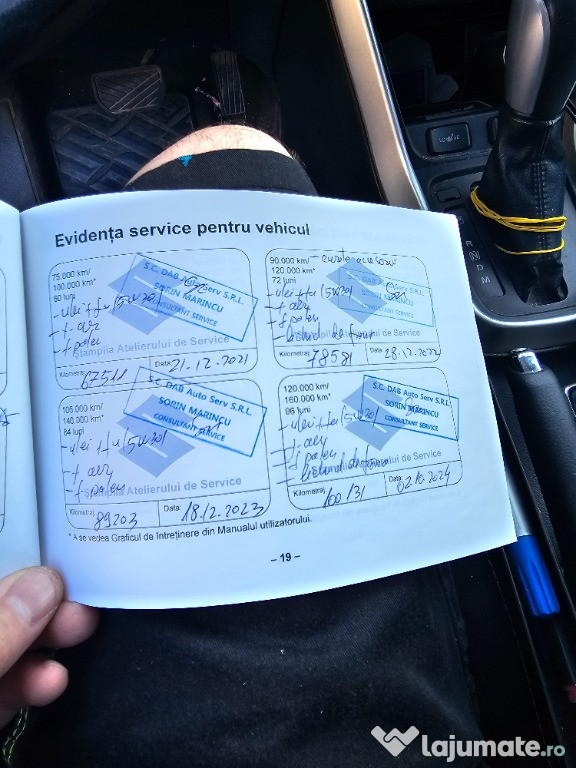 Evidența service pentru vehicul
75.000 km/
100.000 km*
60 luni
S.C. DAB Auto Serv S.R.L.
SORIN MARINCU
CONSULTANT SERVICE
- ulei + fu (5W30)
- f. aer
- f polen
Ștampila Atelierului de Service
Kilometraj: 67511
Data: 21.12.2021
90.000 km/
120.000 km*
72 luni
S.C. DAB Auto Serv S.R.L.
SORIN MARINCU
CONSULTANT SERVICE
- ulei + fu (5W30)
- f. aer
- f polen
- lichid de frana
Ștampila Atelierului de Service
Kilometraj: 78581
Data: 28.12.2022
105.000 km/
140.000 km*
84 luni
S.C. DAB Auto Serv S.R.L.
SORIN MARINCU
CONSULTANT SERVICE
- ulei + fu (5W30)
- f aer
- f polen
Ștampila Atelierului de Service
Kilometraj: 89203
Data: 18.12.2023
120.000 km/
160.000 km*
96 luni
S.C. DAB Auto Serv S.R.L.
SORIN MARINCU
CONSULTANT SERVICE
- ulei + fu (5W30)
- f. aer
- f polen
- lichid de frana
Ștampila Atelierului de Service
Kilometraj: 100131
Data: 02.10.2024
* A se vedea Graficul de întreținere din Manualul utilizatorului.
– 19 –
R
N
D
M
lajumate.ro